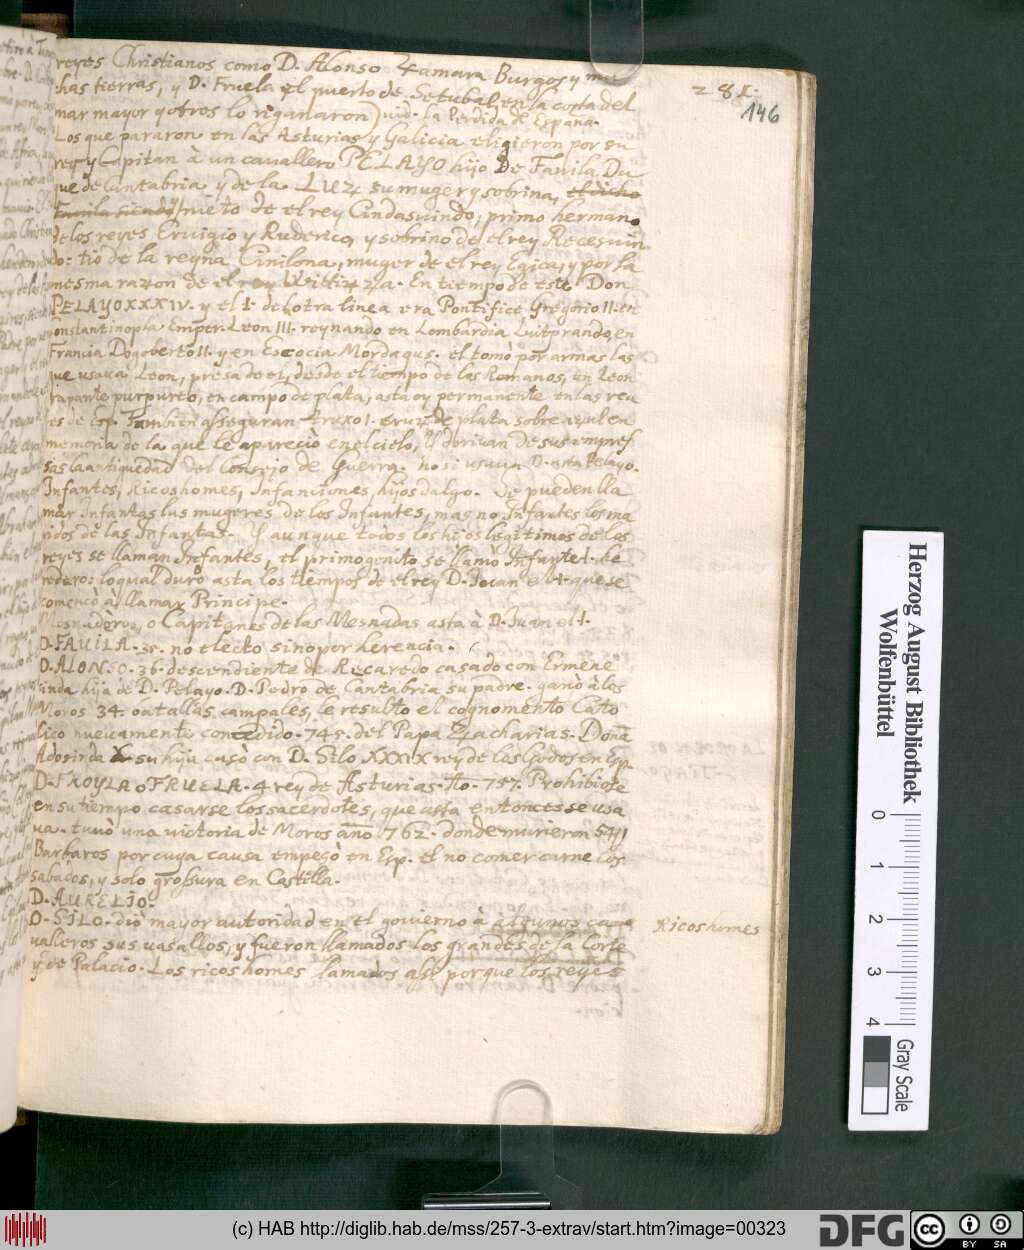 281.
146
reyes Christianos como D. Alonso Zamara Burgos y mu
has tierras, y D. Fruela el puerto de Setubal en la costa del
mar mayor y otros lo riganaron) vid. la Perdida de España.
Los que pararon en las Asturias y Galicia eligieron por su
rey y Capitan à un cavallero PELAYO hijo De Favila Du
que de Cantabria y de la LUZ su muger y sobrina, el dicho
Favila siendo nieto de el rey Cindasuindo, primo hermano
de los reyes Ervigio y Ruderico, y sobrino de el rey Recesuin
do: tio de la reyna Cinilona, muger de el rey Egica, y por la
mesma razon de el rey Wittizza. En tiempo de este Don
PELAYO XXXIV. y el I. de otra linea era Pontifice Gregorio II. en
Constantinopla Emper. Leon III. reynando en Lombardia Luitprando, en
Francia Dogoberto II. y en Escocia Mordaqus. el tomò por armas las
que usava Leon, presa de el, desde el tiempo de los Romanos, un Leon
rapante purpureo, en campo de plata, asta oy permanente en las rea
es de Esp. Tambien asseguran truxo I. cruz de plata sobre azul en
memoria de la que le aparecio en el cielo, Y derivan de sus empres
sas la antiguedad del Consejo de Guerra. no si usava D. Pelayo.
Infantes, Ricoshomes, Infanciones, hijos dalgo. Se pueden lla
mar Infantas las mugeres de los Infantes, mas no Infantes los ma
ridos de las Infantas. Y aunque todos los hijos legitimos de los
reyes se llaman Infantes, el primogenito se llamo Infante I. he
redero: loqual durò asta los tiempos de el rey D. Iouan el I. que se
comencò à llamar Principe.
Mesnaderos, o Capitanes de las Mesnadas asta à D. Juan el I.
D. FAUILA. 35. no electo sino por herencia.
D. ALONSO. 36. descendiente de Recaredo casado con Ermene
sinda hija de D. Pelayo. D. Pedro de Cantabria su padre. ganò à los
Moros 34. batallas campales, le resulto el cognomento Cato
lico nuevamente concedido. 745. del Papa Zacharias. Dona
Adosinda su hija casò con D. Silo XXXIX rey de los Godos en Esp.
D. FROYLA o FRUELA. 4 rey de Asturias. Ao. 757. Prohibiose
en su tiempo casarse los sacerdotes, que asta entonces se usa
va. tuvò una victoria de Moros año 762. donde murieron 54
Barbaros por cuya causa empeçò en Esp. el no comer carne los
sabados, y solo grossura en Castilla.
D. AURELIO.
D. SILO. diò mayor autoridad en el govierno à algunos ca
valleros sus vasallos, y fueron llamados los grandes de la Corte
y de Palacio. Los ricos homes llamados assi porque los reyes
Ricoshomes
Herzog August Bibliothek
Wolfenbüttel
0 1 2 3 4
Gray Scale
(c) HAB http://diglib.hab.de/mss/257-3-extrav/start.htm?image=00323
DFG
cc BY SA